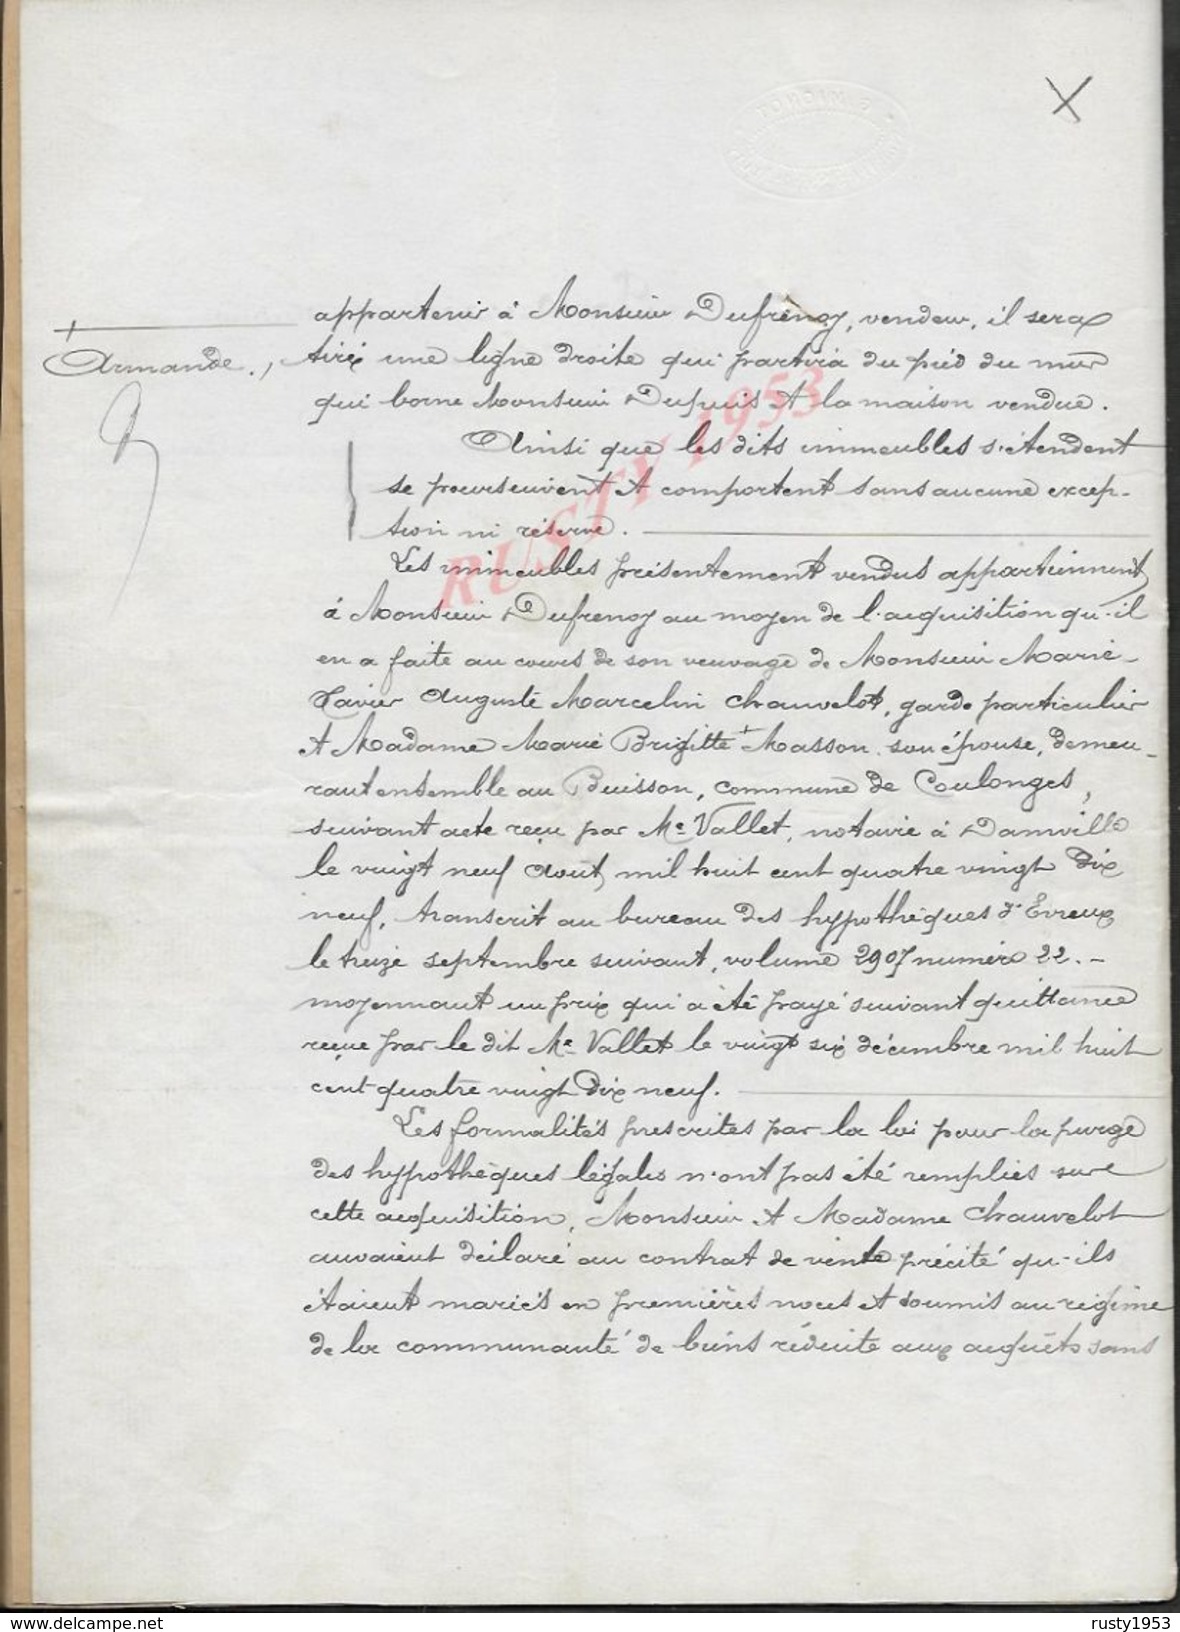 appartenir à Monsieur Dufrénoy, vendeur, il sera
Armande.,
tiré une ligne droite qui partira du pied du mur
qui borne Monsieur Dupuis et la maison vendue.
Ainsi que les dits immeubles s'étendent
se poursuivent et comportent sans aucune excep-
tion ni réserve.
Les immeubles présentement vendus appartiennent
à Monsieur Dufrenoy au moyen de l'acquisition qu'il
en a faite au cours de son veuvage de Monsieur Marie
Xavier Auguste Marcelin Chauvelot, garde particulier
et Madame Marie Brigitte + Masson son épouse, demeu-
rant ensemble au Buisson, commune de Coulonges,
suivant acte reçu par Me Vallet, notaire à Damville
le vingt neuf Août mil huit cent quatre vingt dix
neuf, transcrit au bureau des hypothèques d'Evreux
le treize septembre suivant, volume 2907 numéro 22. -
moyennant un prix qui a été payé suivant quittance
reçue par le dit Me Vallet le vingt six décembre mil huit
cent quatre vingt dix neuf.
Les formalités prescrites par la loi pour la purge
des hypothèques légales n'ont pas été remplies sur
cette acquisition, Monsieur et Madame Chauvelot
auvaient déclaré au contrat de vente précité qu'ils
étaient mariés en premières noces et soumis au régime
de la communauté de biens réduite aux acquêts sans
RUSTY 1953
delcampe.net
rusty1953